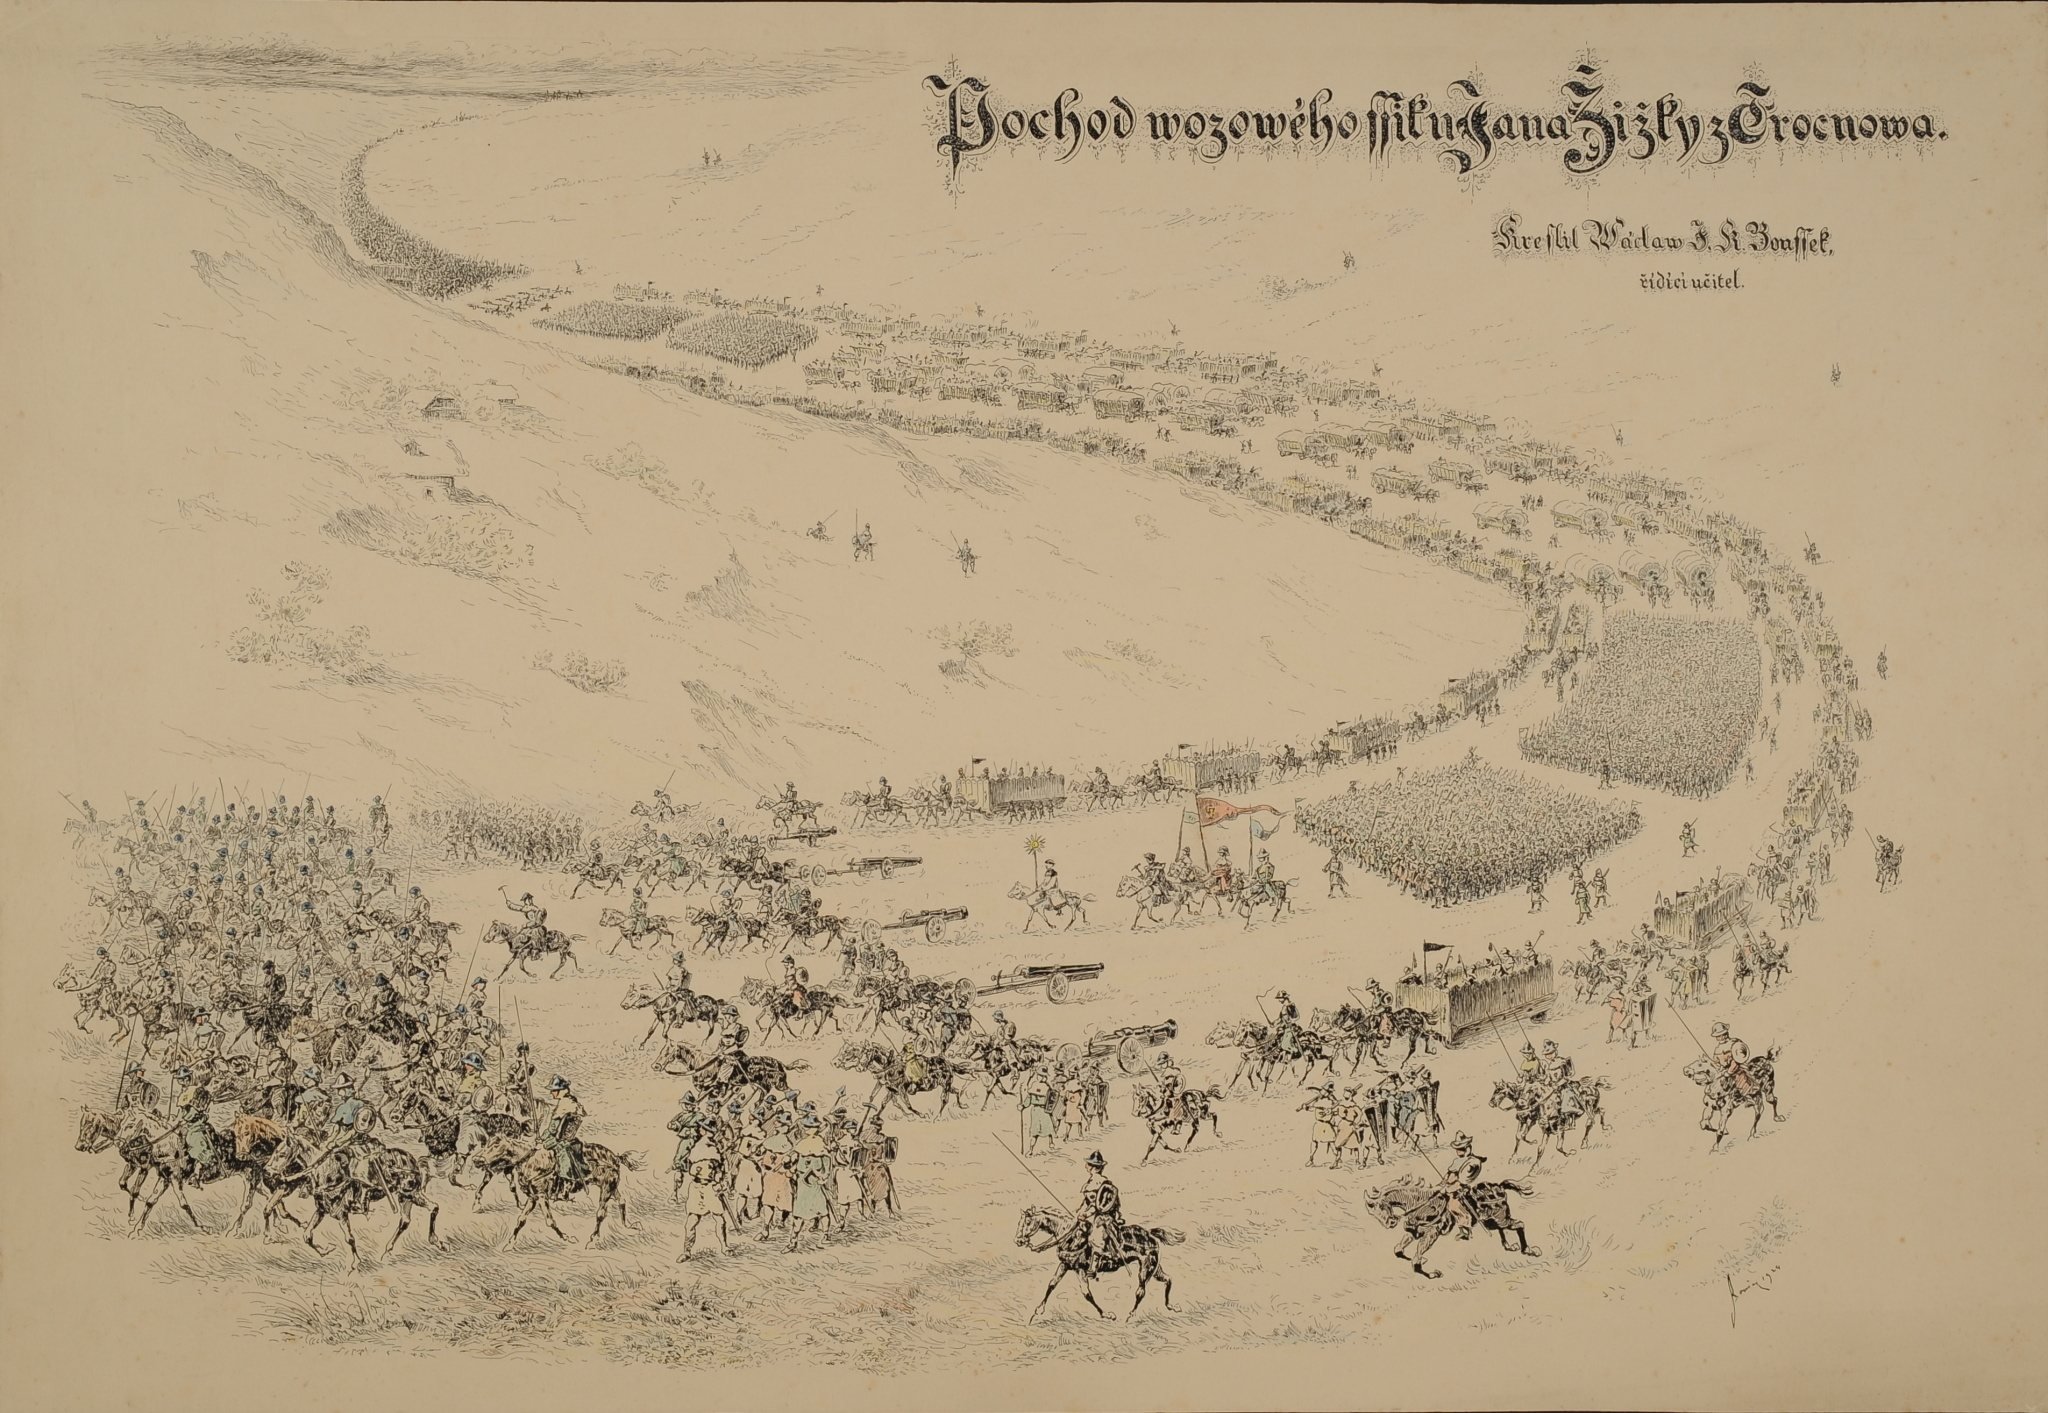 Pochod wozowého ssiku Jana Žižky z Trocnowa.
Kreslil Wáclaw J. K. Boussek,
řídící učitel.